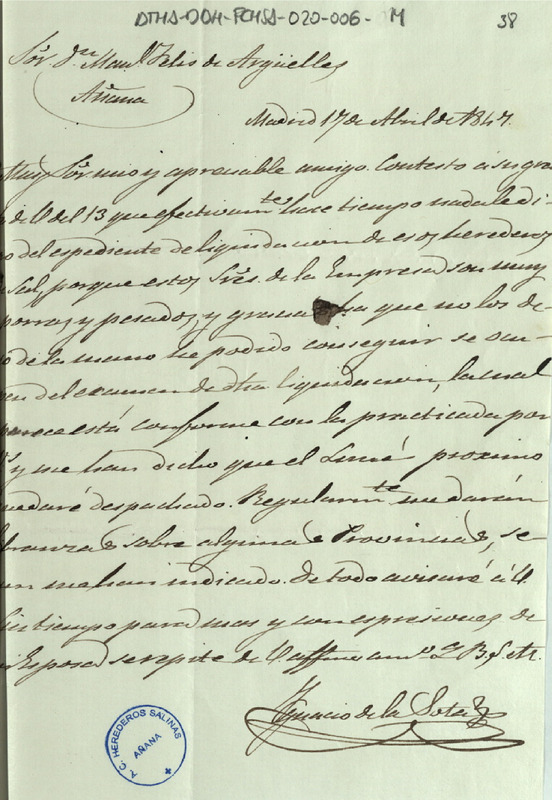 DTHA-DOH-FCHSA-020-006-M
38
Sōr. Dn. Manl. Felis de Argüelles
Añana
Madrid 17 de Abril de 1847.
Muy Sōr. mio y apreciable amigo. Contesto á su gra
de U del 13 que efectivamte. hace tiempo nada le di
o del espediente de liquidacion de esos herederos
Sal, porque estos Sres. de la Empresa son muy
porras y pesados, y gracias á que no los de
o de la mano he podido conseguir se ocu
pen del examen de dha liquidacion, la cual
parece está conforme con la practicada por
y me han dicho que el Lunes proximo
uedaré despachado. Regularmte. me darán
libranzas sobre algunas Provincias, se
un me han indicado. De todo avisaré á U
sin tiempo para mas y con espresiones de
Esposa se repite de U affmo. amo. Q. B. S. M.
Ignacio de la Sota
A. C. HEREDEROS SALINAS
AÑANA